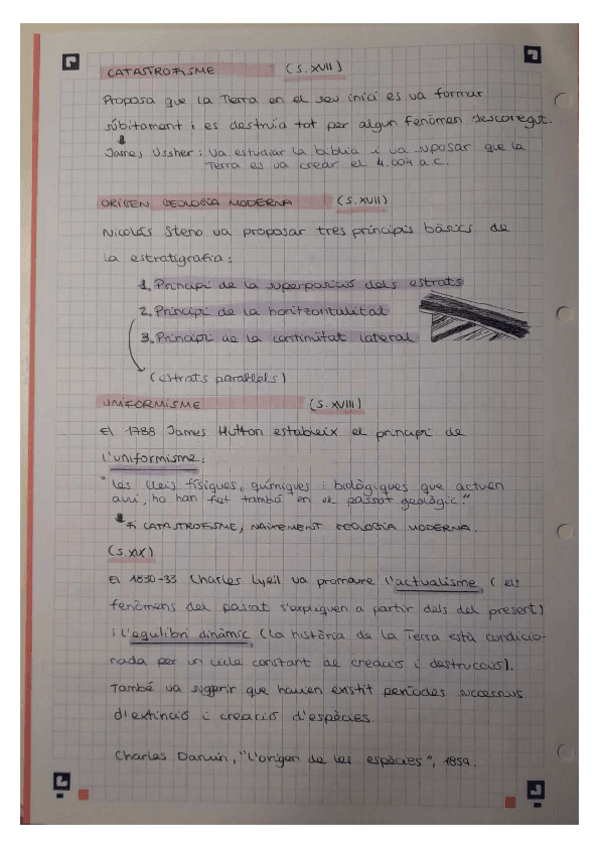 CATASTROFISME (S. XVII)
Proposa que la Terra en el seu inici es va formar
súbitament i es destruïa tot per algun fenomen desconegut.
James Ussher: Va estudiar la bíblia i va suposar que la
Terra es va crear el 4.004 a.C.
ORÍGEN GEOLOGÍA MODERNA (S. XVII)
Nicolás Steno va proposar tres principis bàsics de
la estratigrafia:
1. Principi de la superposició dels estrats
2. Principi de la horitzontalitat
3. Principi de la continuïtat lateral
(estrats paral·lels)
UNIFORMISME (S. XVIII)
El 1788 James Hutton estableix el principi de
l'uniformisme:
"les lleis físiques, químiques i biològiques que actuen
avui, ho han fet també en el passat geològic."
Fi CATASTROFISME, NAIXEMENT GEOLOGIA MODERNA.
(S. XIX)
El 1830-33 Charles Lyell va promoure l'actualisme (els
fenòmens del passat s'expliquen a partir dels del present)
i l'equilibri dinàmic (la història de la Terra està condicio-
nada per un cicle constant de creació i destrucció).
També va suggerir que havien existit períodes successius
d'extinció i creació d'espècies.
Charles Darwin, "L'origen de les espècies", 1859.